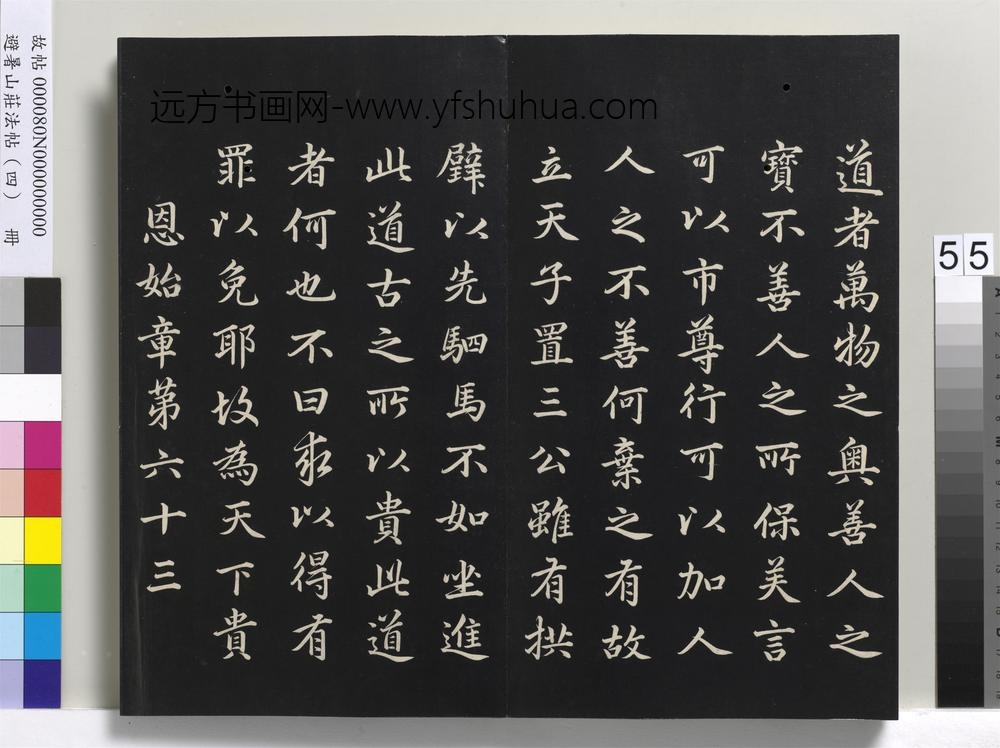 道者萬物之奧善人之
寶不善人之所保美言
可以市尊行可以加人
人之不善何棄之有故
立天子置三公雖有拱
璧以先駟馬不如坐進
此道古之所以貴此道
者何也不曰求以得有
罪以免耶故為天下貴
恩始章第六十三
远方书画网-www.yfshuhua.com
故帖 000080N000000000
避暑山莊法帖（四） 冊
55